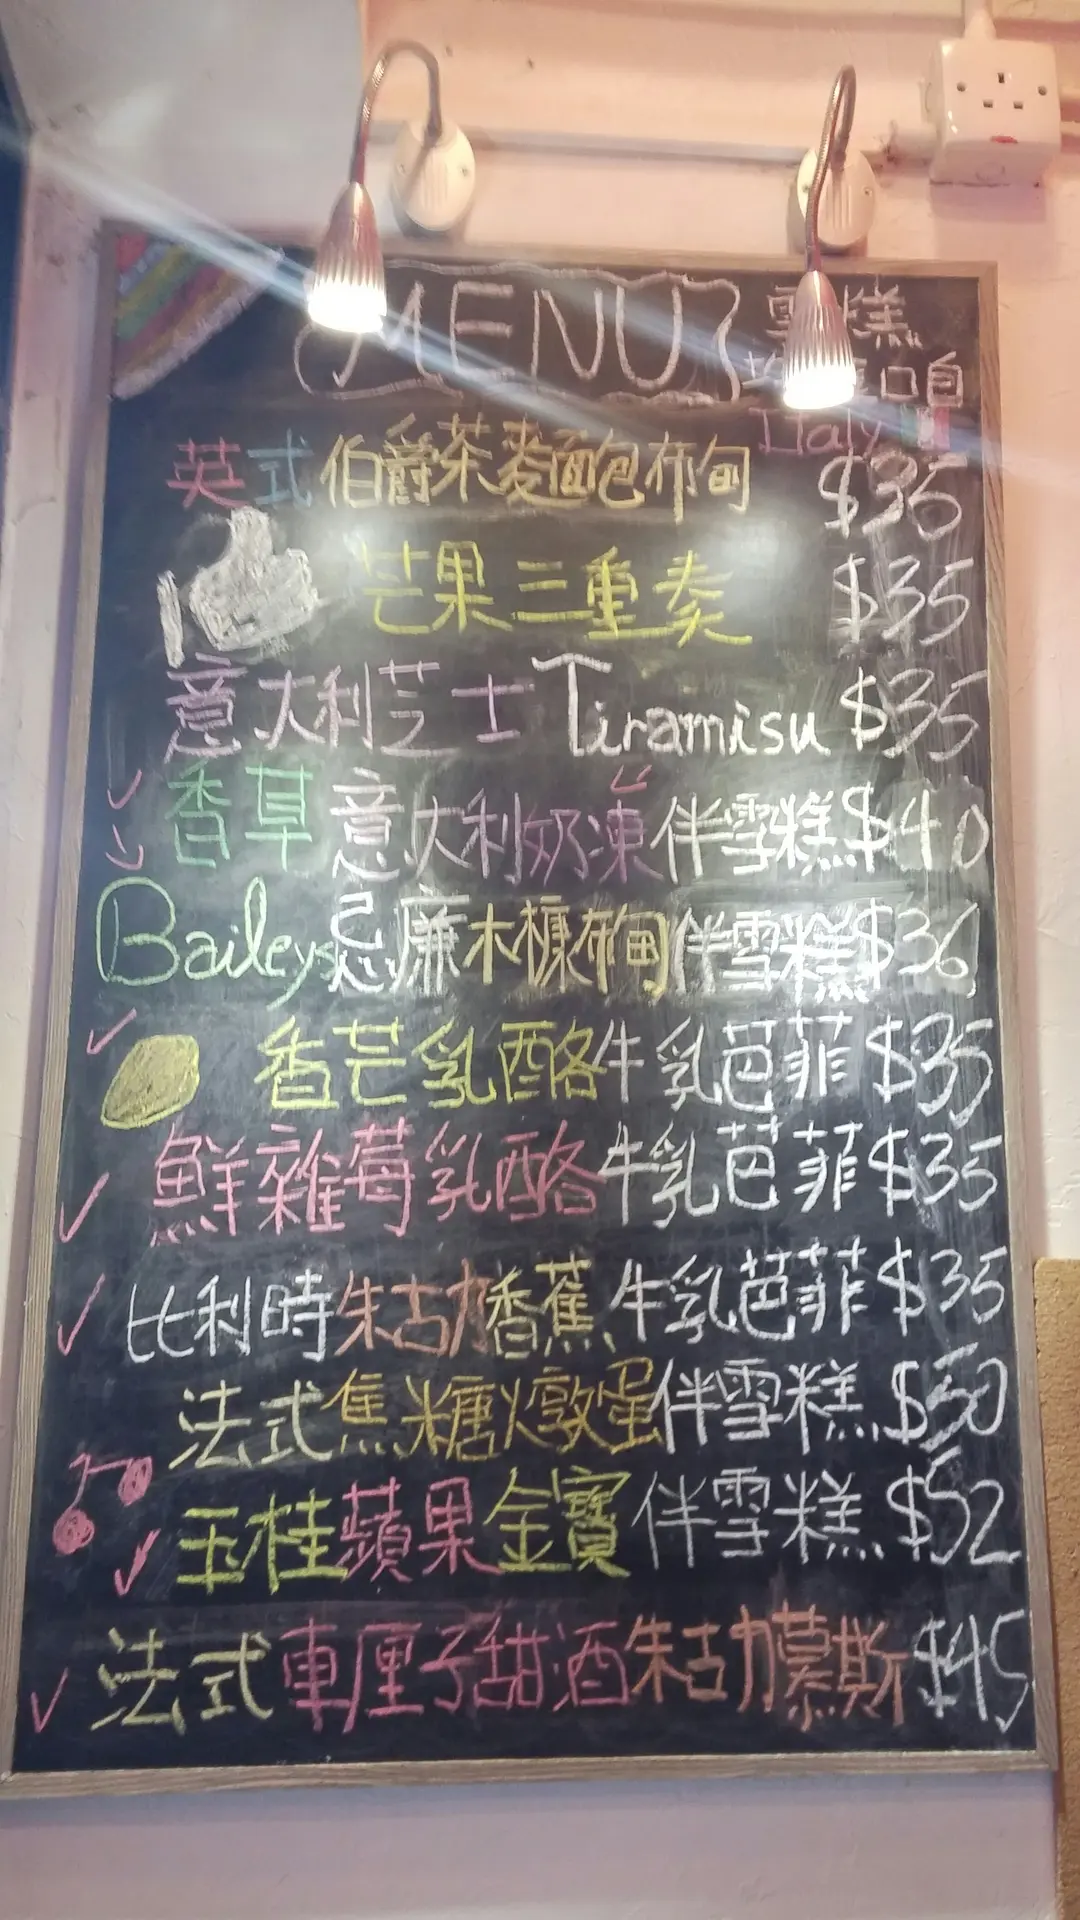 MENU
雪糕
口自
Italy
英式伯爵茶麵包布甸 $36
芒果三重奏 $35
意大利芝士Tiramisu $35
香草意大利奶凍伴雪糕 $40
Baileys忌廉木糠布甸伴雪糕 $36
香芒乳酪牛乳芭菲 $35
鮮雜莓乳酪牛乳芭菲 $35
比利時朱古力香蕉牛乳芭菲 $35
法式焦糖燉蛋伴雪糕 $50
玉桂蘋果金寶伴雪糕 $52
法式車厘子甜酒朱古力慕斯 $45